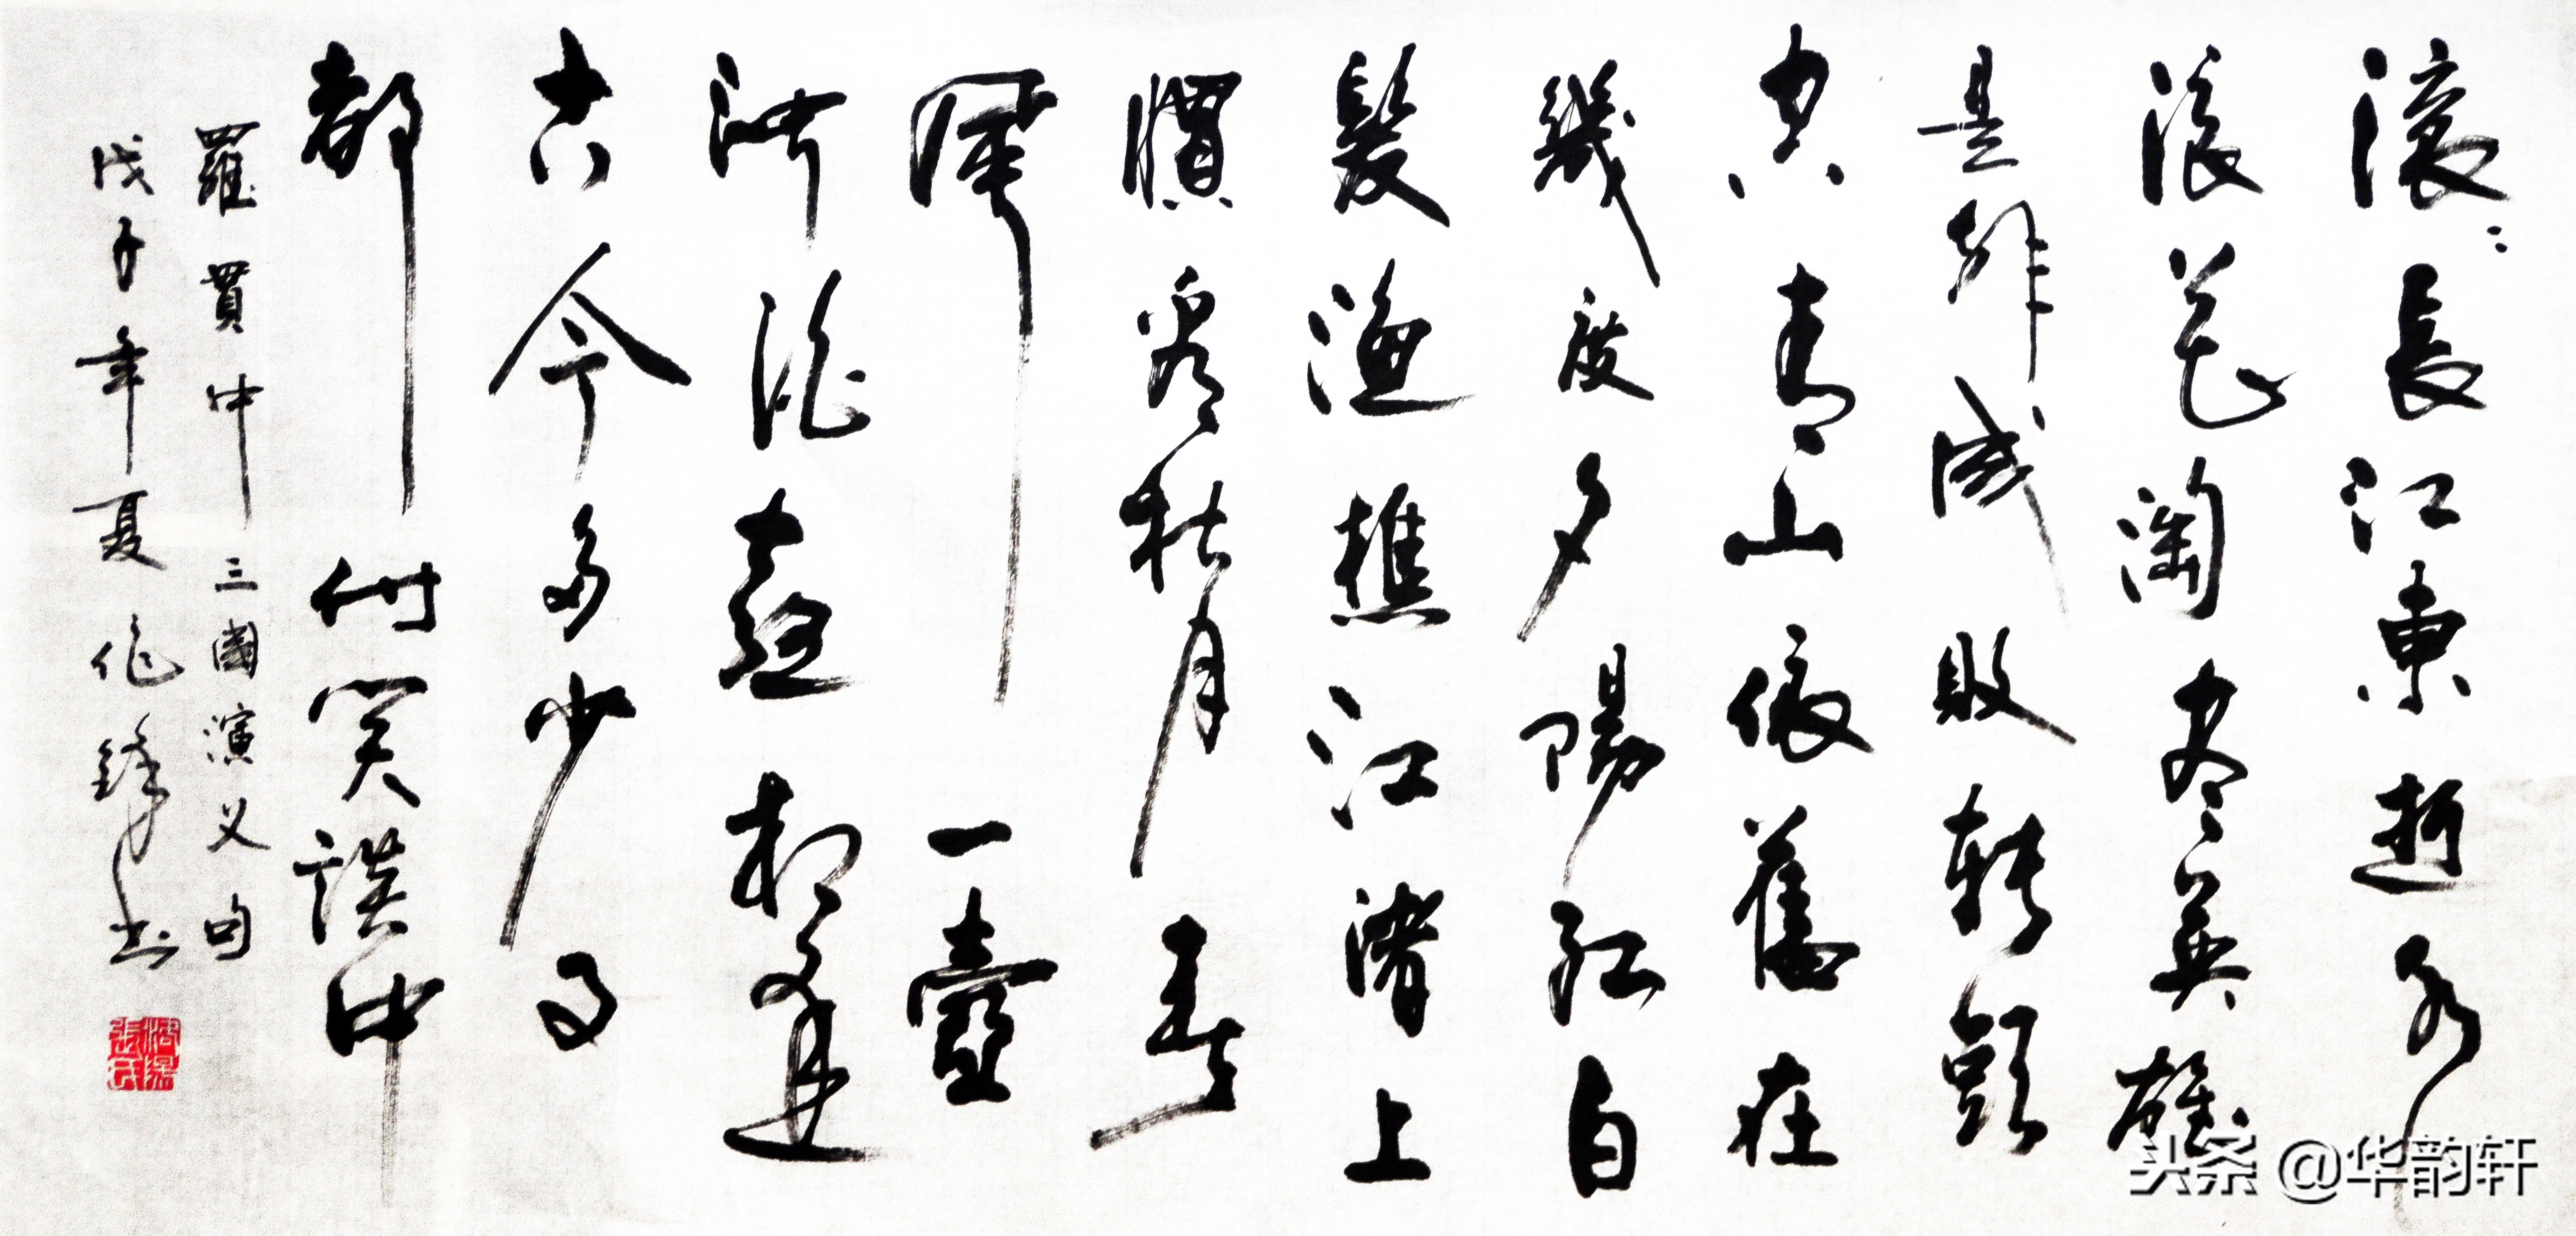 滚〻長江東逝水
浪花淘尽英雄
是非成敗转頭
空青山依舊在
幾度夕陽紅白
髮漁樵江渚上
慣看秋月春
風一壺
濁酒喜相逢
古今多少事
都付笑談中
羅貫中三國演义句
戊子年夏作鋒书
头条 @华韵轩